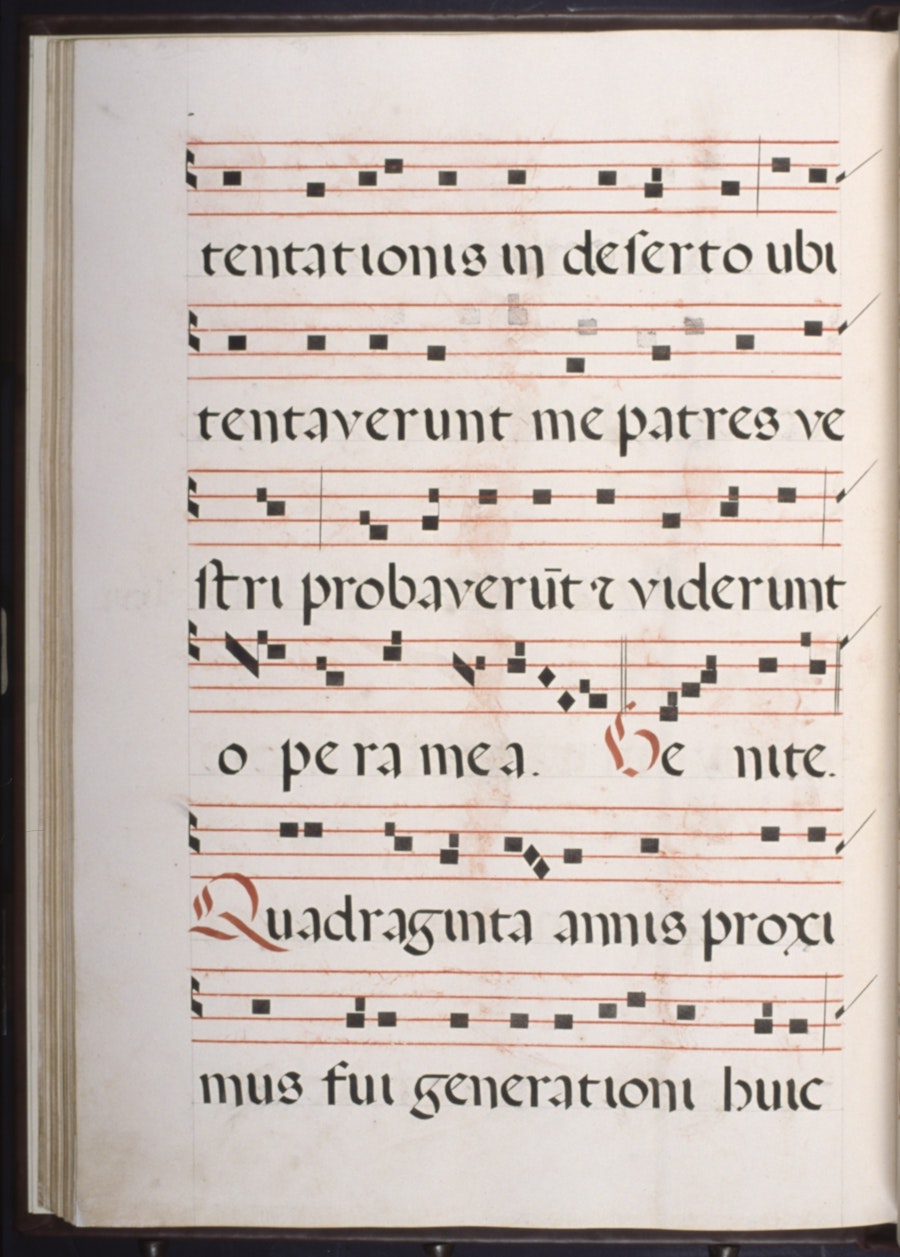 tentationis in deſerto ubi
tentaverunt me patres ve
ſtri probaverūt ⁊ viderunt
o pe ra me a. Ve nite.
Quadraginta annis proxi
mus fui generationi huic